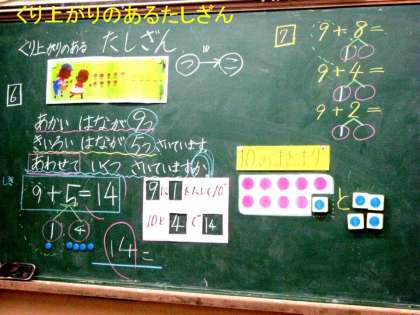 くり上がりのあるたしざん
くり上がりのある たしざん
つ→こ
6
あかい はなが 9つ
きいろい はなが 5つ さいています
あわせて いくつ さいていますか
しき
9+5=14
1 4
14こ
9に1をたして10
10と4で14
7
9+8=
1
9+4=
1
9+2=
1
10の
と